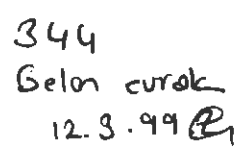 344
Gelen evrak
12.3.99